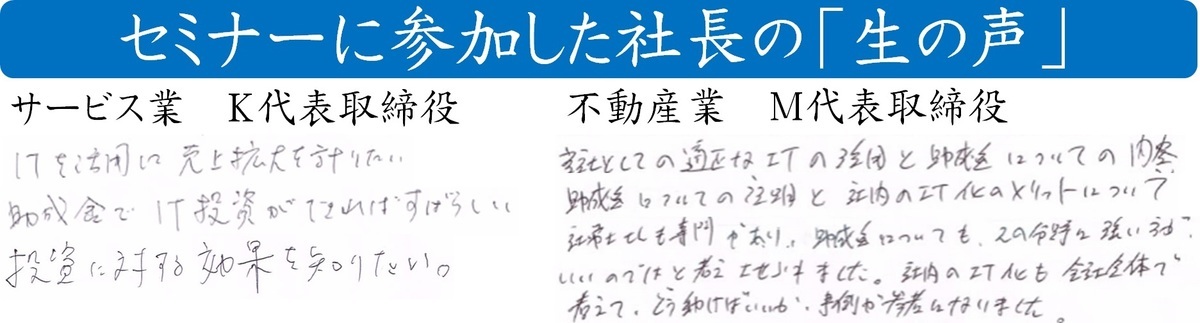 セミナーに参加した社長の「生の声」
サービス業　K代表取締役
ITを活用し 売上拡大を計りたい
助成金でIT投資ができればすばらしい
投資に対する効果を知りたい。
不動産業　M代表取締役
会社としての適正なITの活用と助成金についての内容
助成金についての説明と社内のIT化のメリットについて
社労士にも専門があり、助成金についても、その分野に強い方が、
いいのではと考え ました。社内のIT化も会社全体で
考えて、どう動けばいいか、事例が参考になりました。